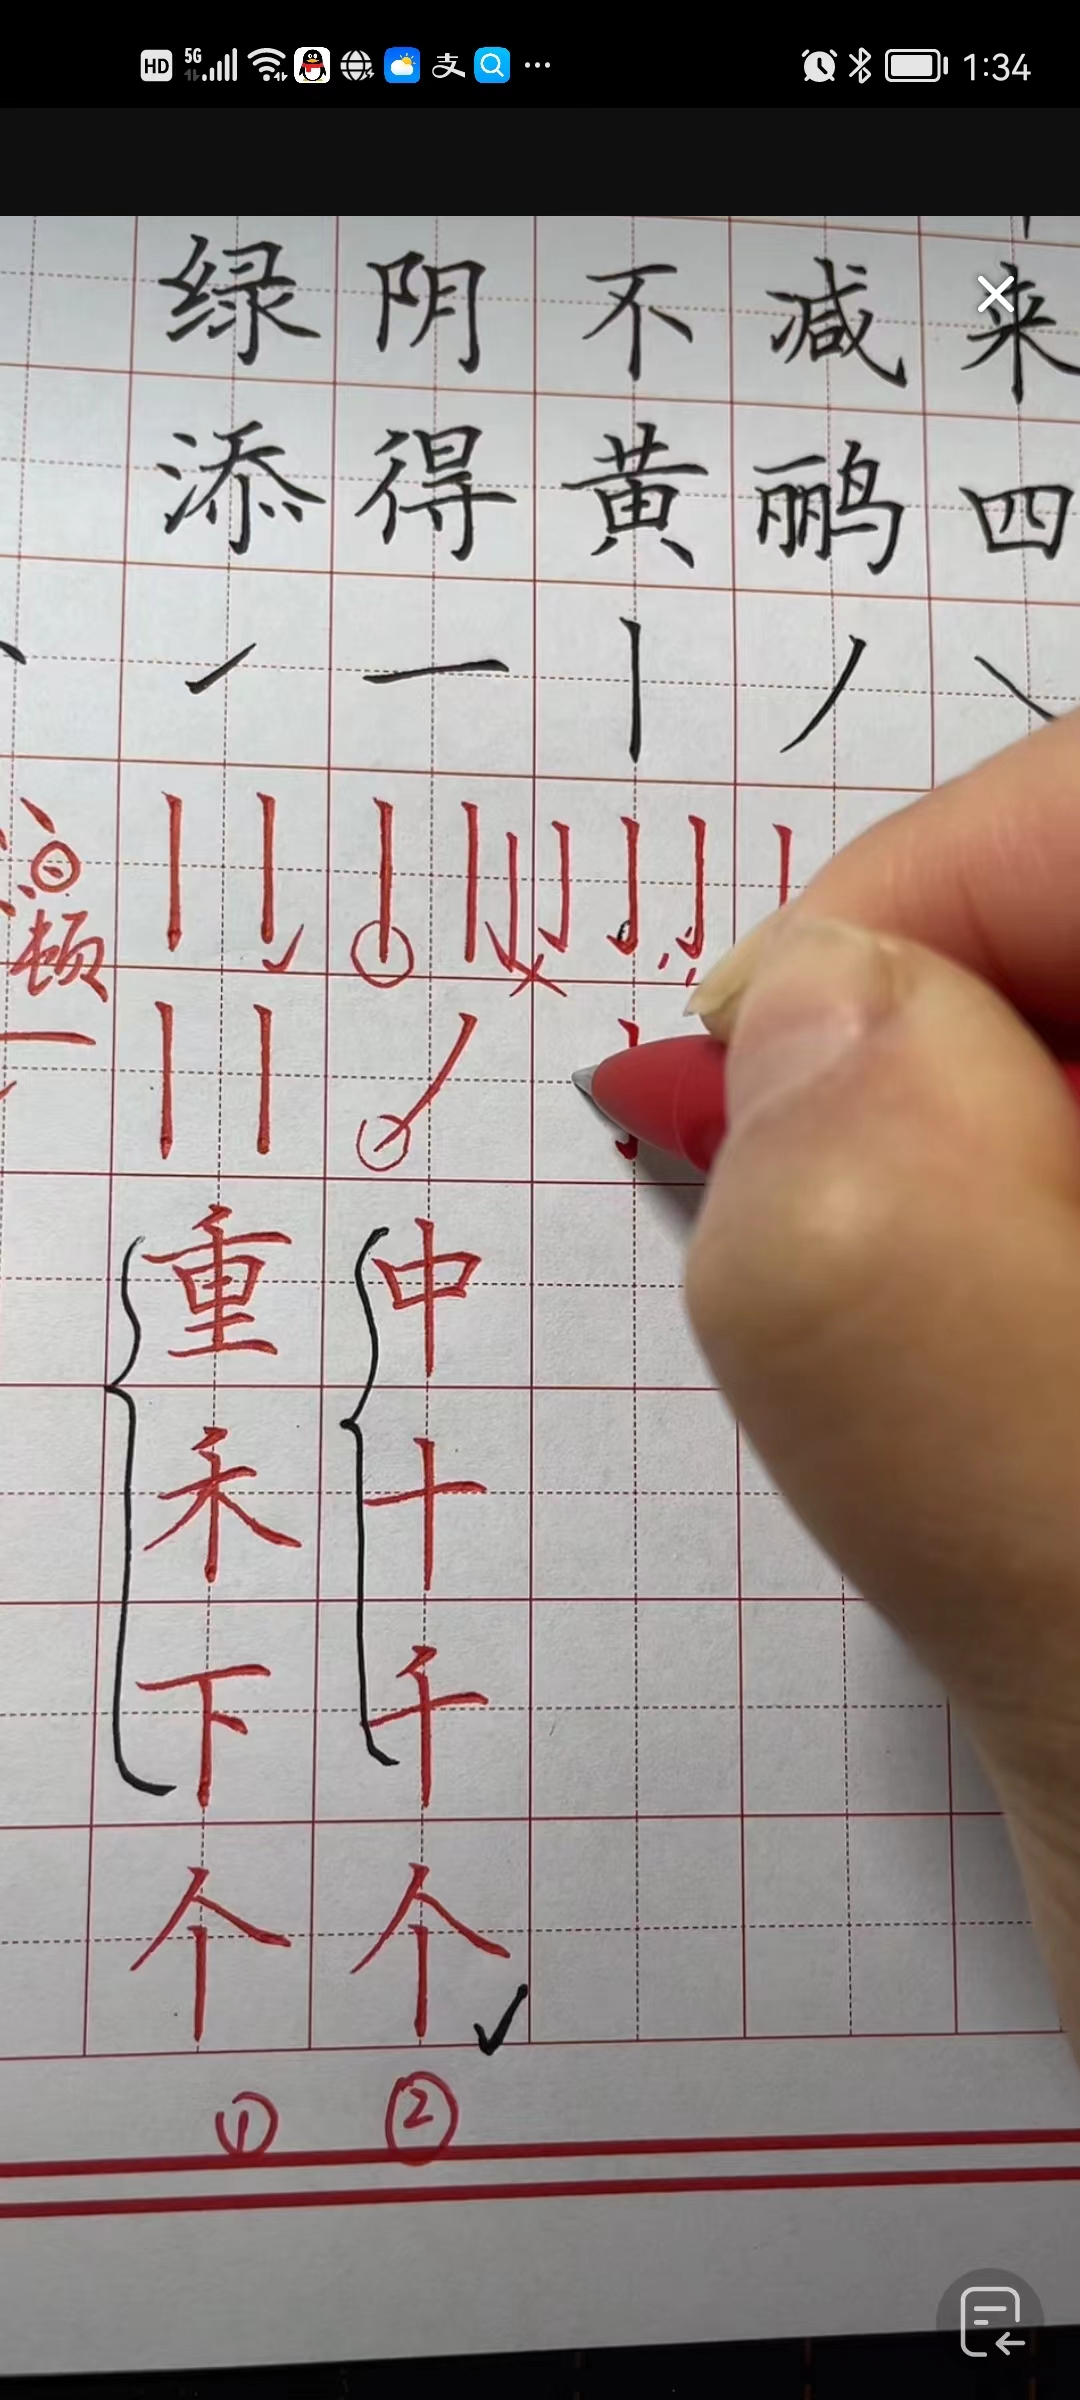 HD 5G 支 1:34
绿阴不减来
添得黄鹂四
顿
重中
禾十
下千
个个
① ②